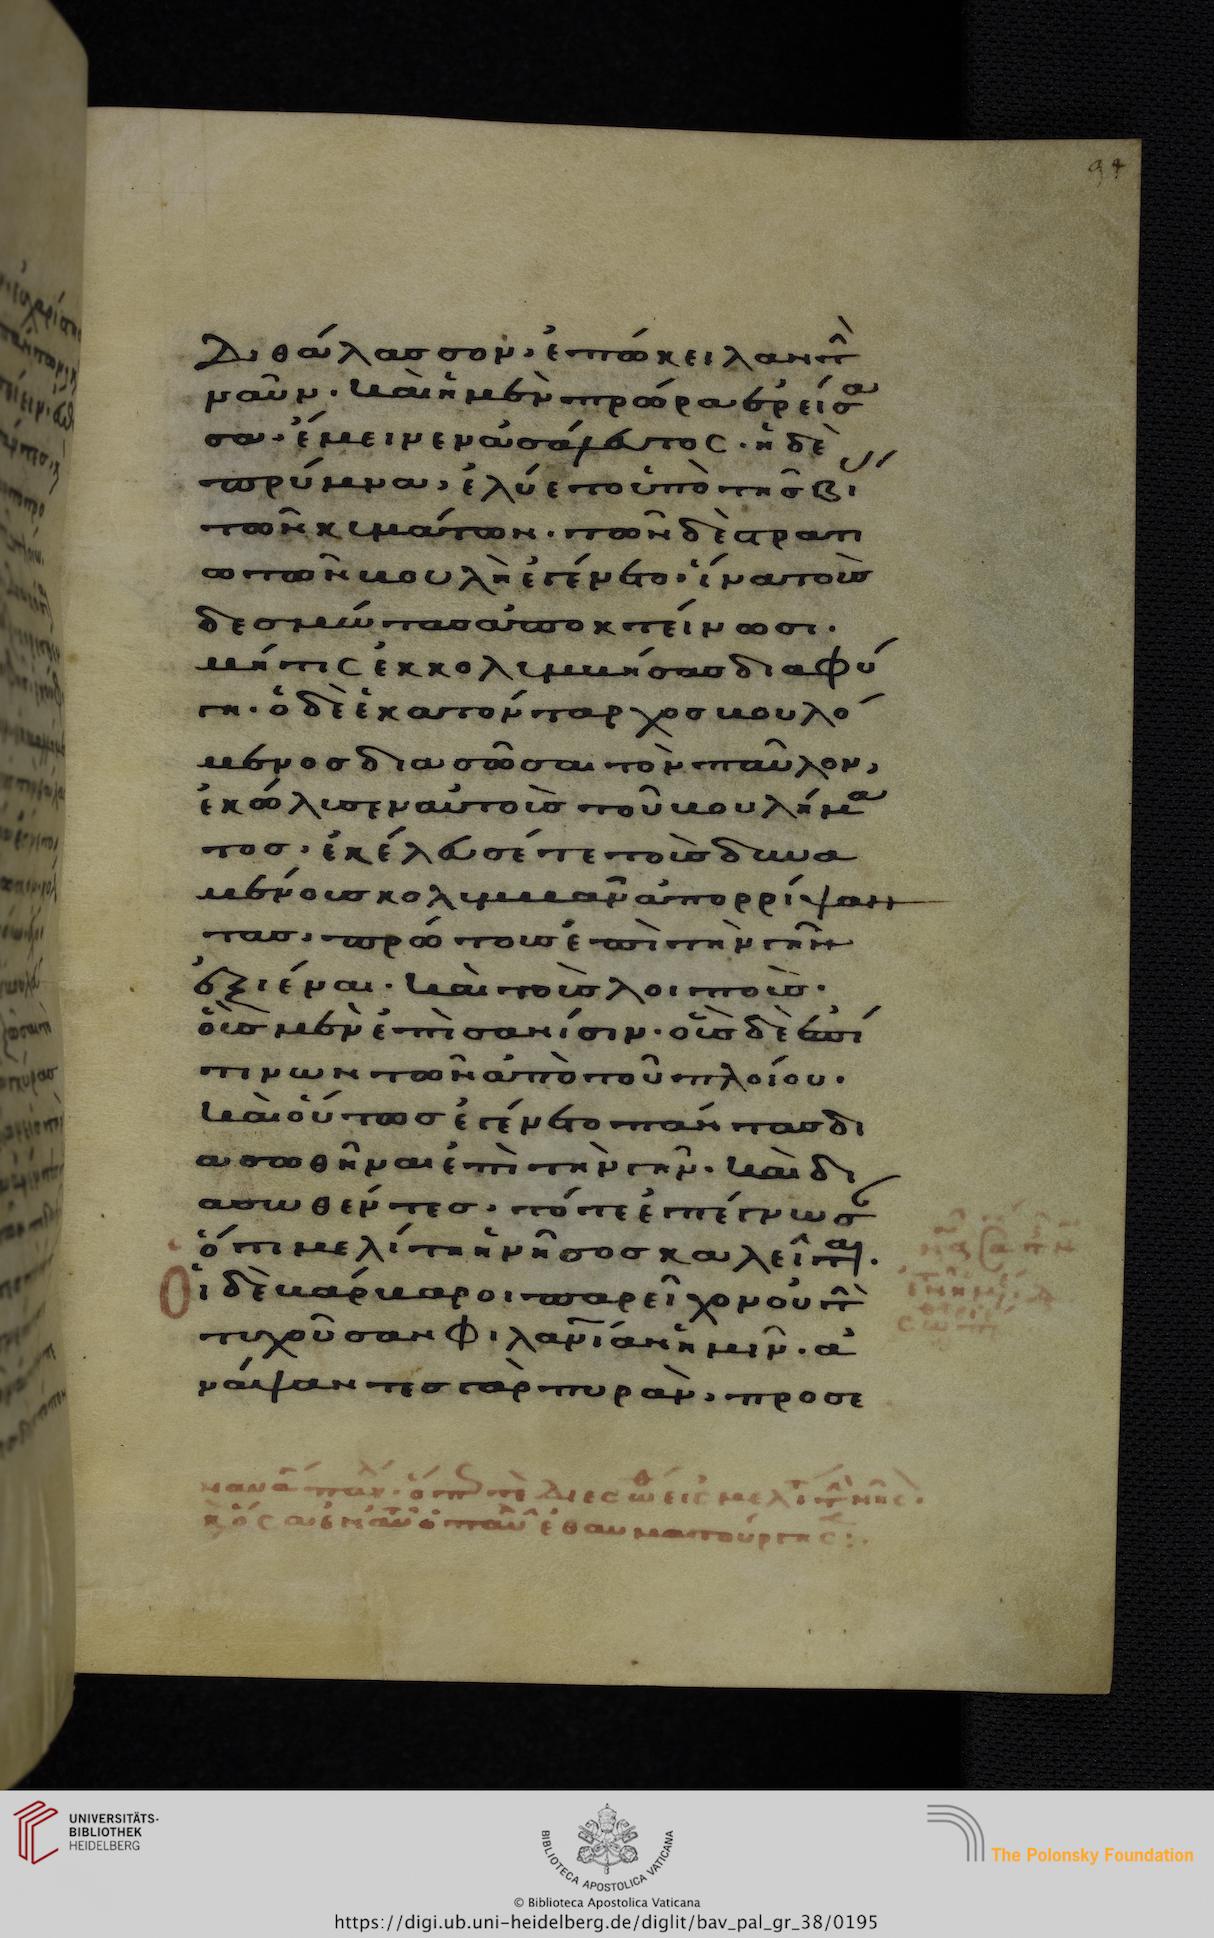 94
Διθάλασσον, ἐπώκειλαν τὴν
ναῦν. καὶ ἡ μὲν πρώρα ἐρείσα
σα. ἔμεινεν ἀσάλευτος. ἡ δὲ
πρύμνα, ἐλύετο ὑπὸ τῆς βί
τῶν κυμάτων. τῶν δὲ στρατι
ωτῶν βουλὴ ἐγένετο. ἵνα τοὺς
δεσμώτας ἀποκτείνωσι.
μήτις ἐκκολυμβήσας διαφύ
γη. ὁ δὲ ἑκατόνταρχος βουλό
μενος διασῶσαι τὸν παῦλον,
ἐκώλυσεν αὐτοὺς τοῦ βουλήμα
τος. ἐκέλευσέ τε τοὺς δυνα
μένους κολυμβᾶν ἀπορρίψαν
τας, πρώτους ἐπὶ τὴν γῆν
ἐξιέναι. καὶ τοὺς λοιποὺς.
οὓς μὲν ἐπὶ σανίσιν. οὓς δὲ ἐπί
τινων τῶν ἀπὸ τοῦ πλοίου.
καὶ οὕτως ἐγένετο πάντας δι
ασωθῆναι ἐπὶ τὴν γῆν. καὶ δι
ασωθέντες, τότε ἐπέγνωσ
ὅτι μελίτη ἡ νῆσος καλεῖται.
Οἱ δὲ βάρβαροι παρεῖχον οὐ τὴν
τυχοῦσαν φιλανίαν ἡμῖν. ἀ
νάψαντες γὰρ πυρὰν, προσε
UNIVERSITÄTS-
BIBLIOTHEK
HEIDELBERG
BIBLIOTECA APOSTOLICA VATICANA
The Polonsky Foundation
© Biblioteca Apostolica Vaticana
https://digi.ub.uni-heidelberg.de/diglit/bav_pal_gr_38/0195